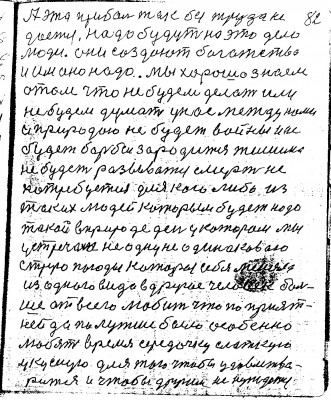 А эта прибыл так бы труда не 82
дается, надо будут на это дело
люди. они создают богатство
и им оно надо. мы хорошо знаем
о том что не будем делат или
не будем думат у нас между нами
и природою не будет войны и не
будет борбы зародится тишина
не будет развиватся смерт не
потребуется для кого либо. из
таких людей которым будет надо
такой в природе ден у котором мы
устречаем не одну не одинаковаю
погоды которы себя
из одного вида в другие человек бол-
ше от всего любит что по прият-
ней да полутше было особенно
любят время середочку слаткую
укусную для того чтобы удовлетво-
рится и чтобы други не нуждат